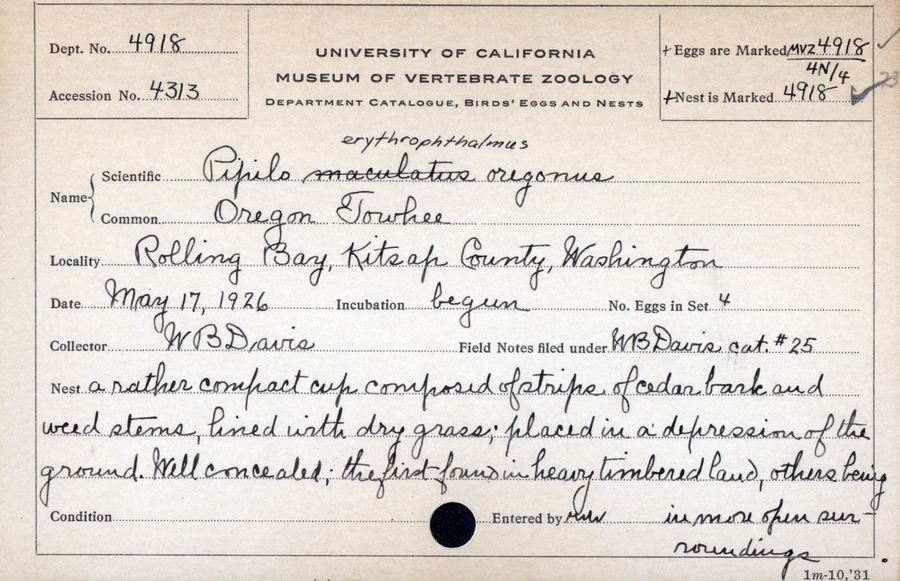 Dept. No. 4918
Accession No. 4313
UNIVERSITY OF CALIFORNIA
MUSEUM OF VERTEBRATE ZOOLOGY
DEPARTMENT CATALOGUE, BIRDS' EGGS AND NESTS
+ Eggs are Marked MVZ 4918
4N/4
+ Nest is Marked 4918
23
erythrophthalmus
Name { Scientific Pipilo maculatus oregonus
Common Oregon Towhee
Locality Rolling Bay, Kitsap County, Washington
Date May 17, 1926 Incubation begun No. Eggs in Set 4
Collector W B Davis Field Notes filed under WB Davis cat. #25
Nest a rather compact cup composed of strips of cedar bark and
weed stems, lined with dry grass; placed in a depression of the
ground. Well concealed; the first found in heavy timbered land, others being
Condition Entered by in more open sur-
roundings
1m-10,'31